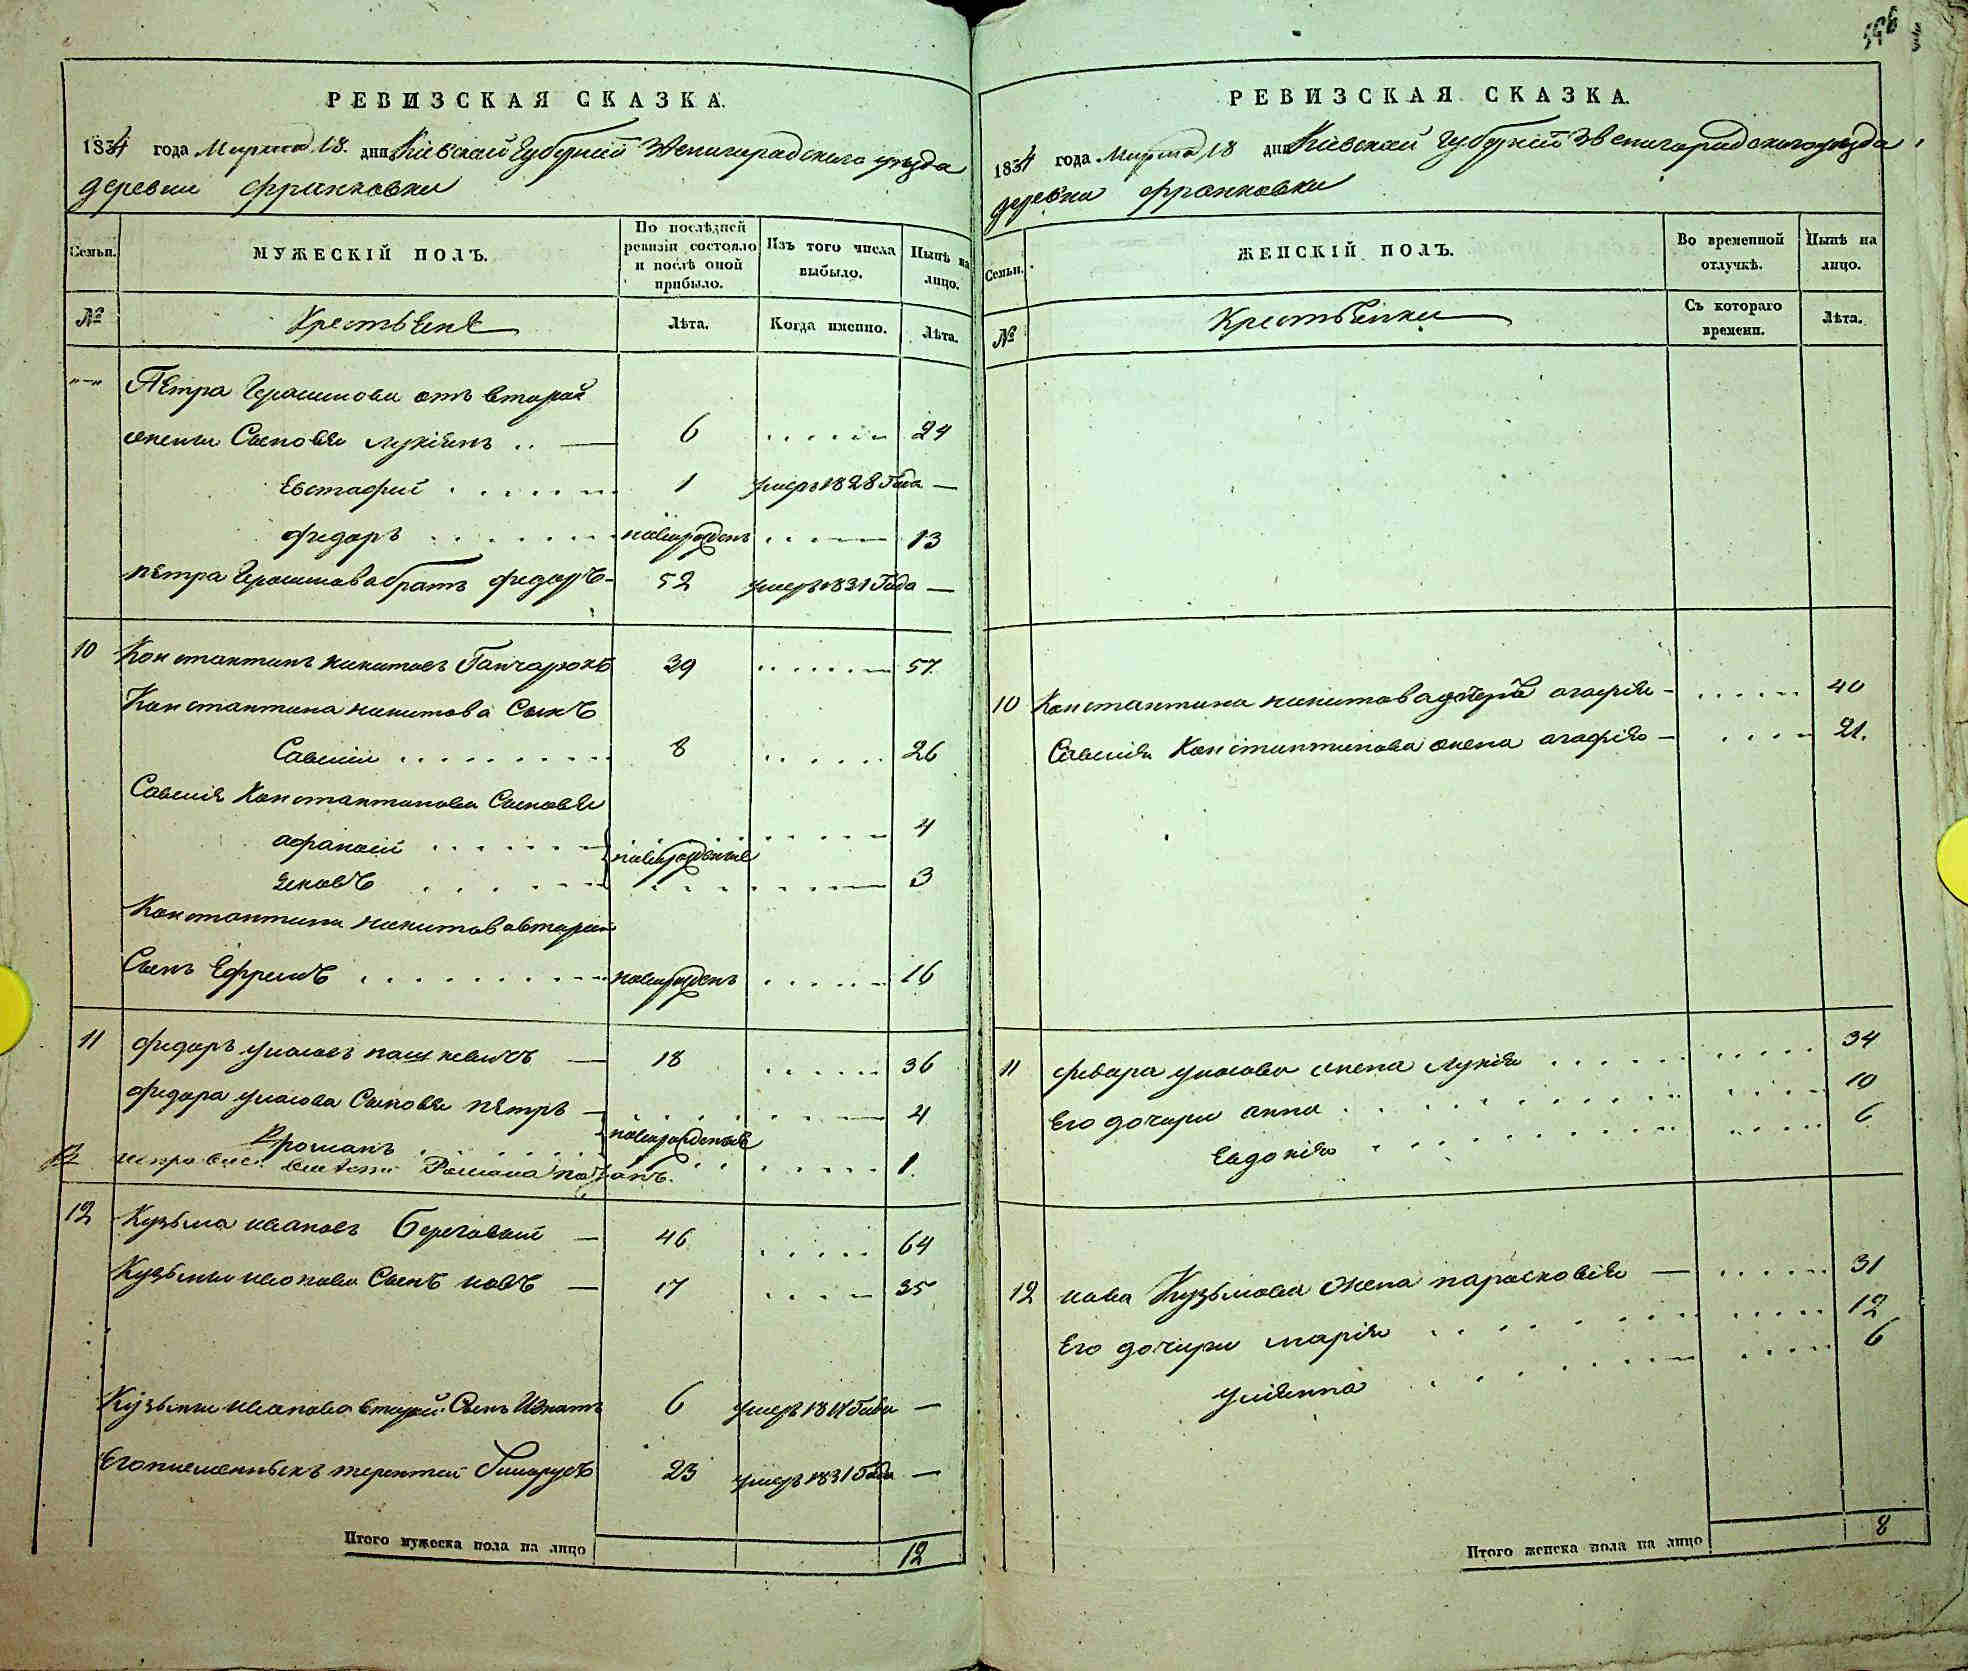 РЕВИЗСКАЯ СКАЗКА.
1834 года Марта 18 дня Кіевской Губерніи Звенигородского уезда
деревни Франковки
Семьи.
МУЖЕСКІЙ ПОЛЪ.
По послѣдней ревизіи состояло и послѣ оной прибыло.
Изъ того числа выбыло.
Нынѣ на лицо.
№
Крестьяне
Лѣта.
Когда именно.
Лѣта.
"–" Петра Герасимова отъ второй
жены Сыновья Лукіянъ 6 24
Евстафий 1 умеръ 1828 Года —
Федоръ новорожденъ 13
Петра Герасимова братъ Федоръ 52 умеръ 1831 Года —
10 Константинъ Никитовъ Ганчарюкъ 39 57
Константина Никитова Сынъ
Савелий 8 26
Савелія Константинова Сыновья
Афанасий 4
новорожденные
Яковъ 3
Константина Никитова вторий
Сынъ Ефремъ новорожденъ 16
11 Федоръ Уласовъ Пашкевичъ 18 36
Федора Уласова Сыновья Петръ 4
новорожденные
Романъ 1
12 Кузьма Ивановъ Береговый 46 64
Кузьмы Иванова Сынъ Иовъ 17 35
Кузьмы Иванова вторый Сынъ Игнатъ 6 умеръ Года —
Его племенныкъ Терентей 23 умеръ 1831 Года —
Итого мужеска пола на лицо 12
РЕВИЗСКАЯ СКАЗКА.
1834 года Марта 18 дня Кіевской Губерніи Звенигородского уезда
деревни Франковки
Семьи.
ЖЕНСКІЙ ПОЛЪ.
Во временной отлучкѣ.
Нынѣ на лицо.
№
Крестьянки
Съ котораго времени.
Лѣта.
10 Константина Никитова дочерь Агафія 40
Савелія Константинова жена Агафія 21.
11 Федора Уласова жена Лукія 34
Его дочери Анна 10
Евдокія 6
12 Иова Кузьмова жена Парасковія 31
Его дочери Марія 12
Уліянна 6
Итого женска пола на лицо 8